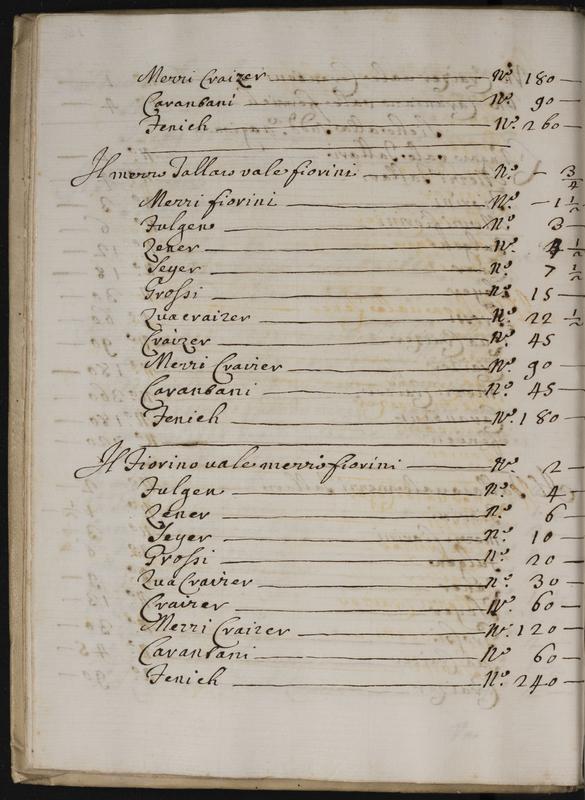 Mezzi Craizer N.º 180
Carantani N.º 90
Fenich N.º 260
Il mezzo Tallaro vale fiorini N.º - 3/4
Mezzi fiorini N.º - 1 1/2
Fulgen N.º 3
Zener N.º 4 1/2
Seyer N.º 7 1/2
Grossi N.º 15
Zuacraizer N.º 22 1/2
Craizer N.º 45
Mezzi Craizer N.º 90
Carantani N.º 45
Fenich N.º 180
Il Fiorino vale mezzi fiorini N.º 2
Fulgen N.º 4
Zener N.º 6
Seyer N.º 10
Grossi N.º 20
Zua Craizer N.º 30
Craizer N.º 60
Mezzi Craizer N.º 120
Carantani N.º 60
Fenich N.º 240